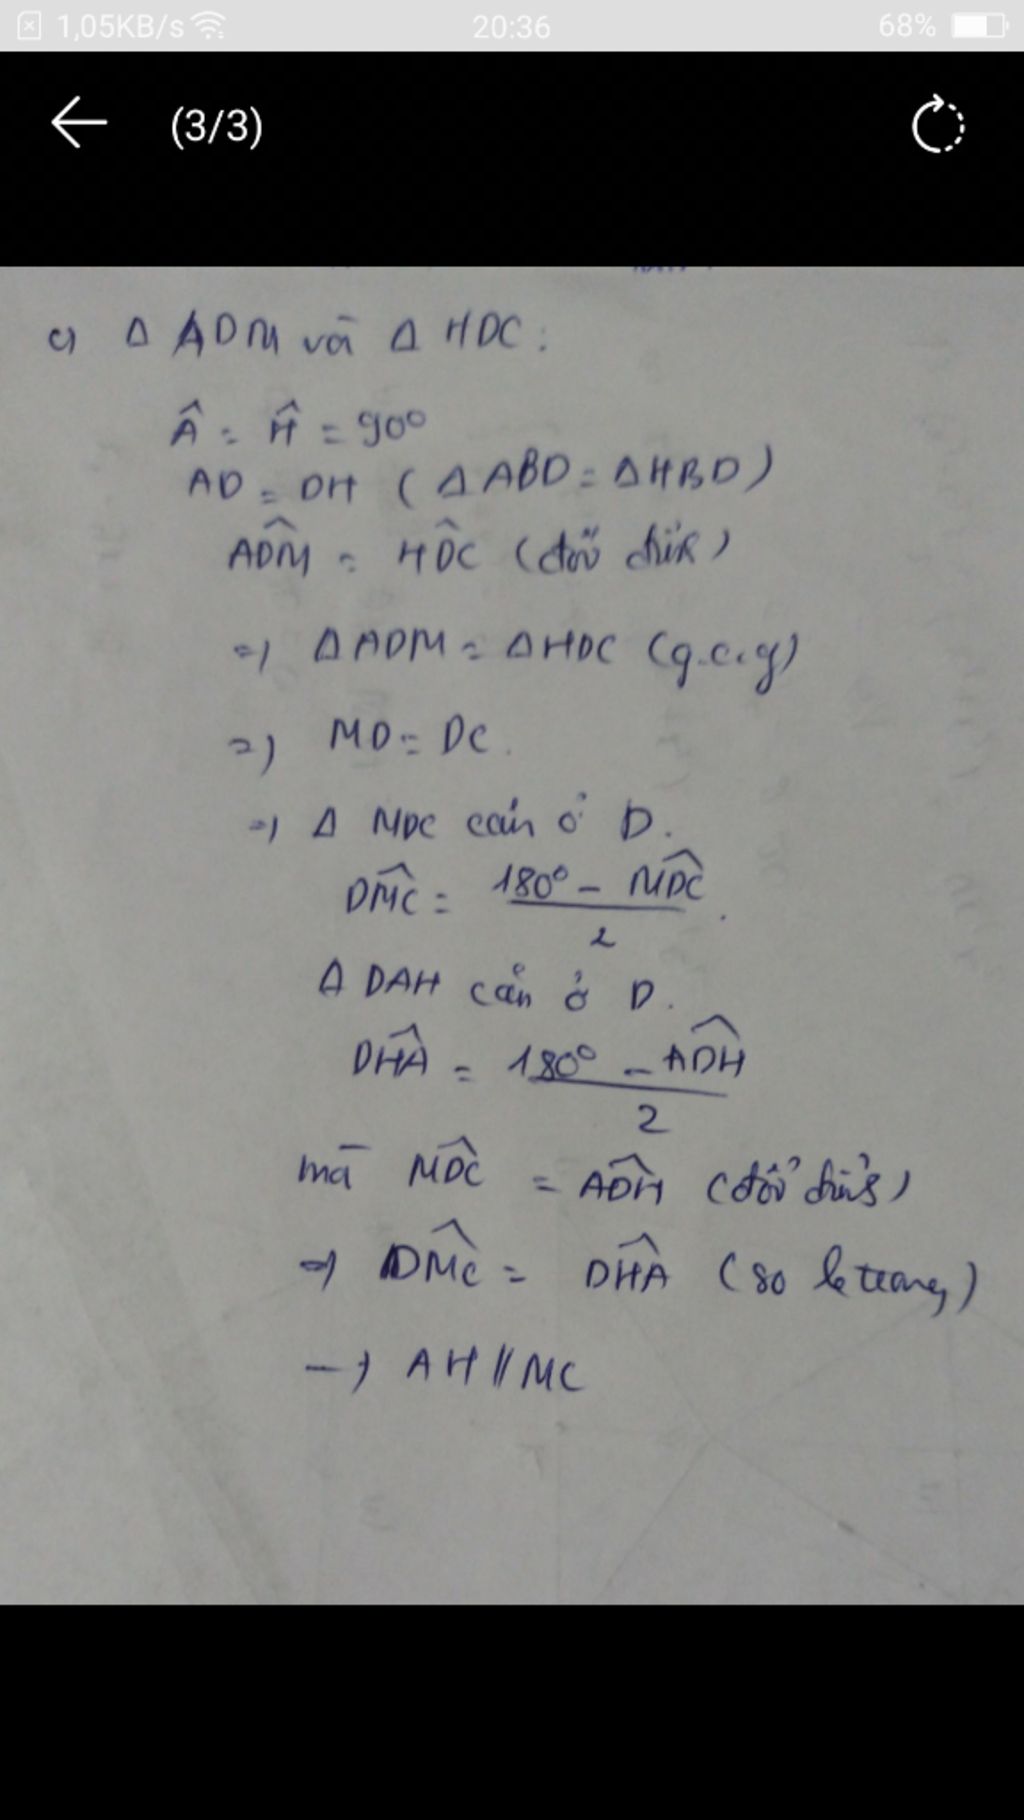 1,05KB/s 20:36 68%
(3/3)
c) Δ ADM và Δ HDC:
Â = Ĥ = 90°
AD = DH (ΔABD = ΔHBD)
ADM̂ = HDĈ (đối đỉnh)
=) ΔADM = ΔHDC (g.c.g)
=) MD = DC.
=) Δ MDC cân ở D.
DMĈ = 180° - MDĈ / 2.
Δ DAH cân ở D.
DHÂ = 180° - ADĤ / 2
mà MDĈ = ADĤ (đối đỉnh)
=) DMĈ = DHÂ (so le trong)
-) AH // MC